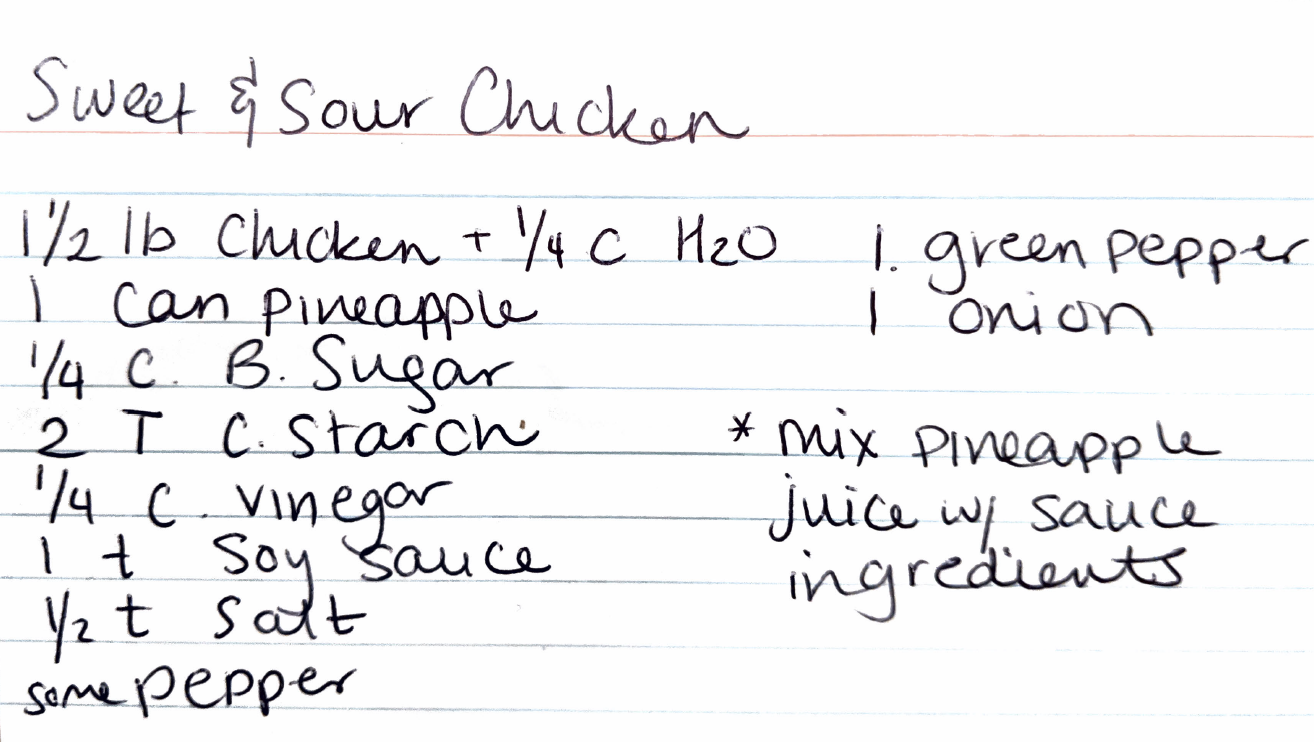 Sweet & Sour Chicken
1 1/2 lb Chicken + 1/4 C H2O
1 Can pineapple
1/4 C. B. Sugar
2 T C. Starch
1/4 C. vinegar
1 t Soy sauce
1/2 t Salt
some pepper
1. green pepper
1 onion
* mix pineapple
juice w/ sauce
ingredients